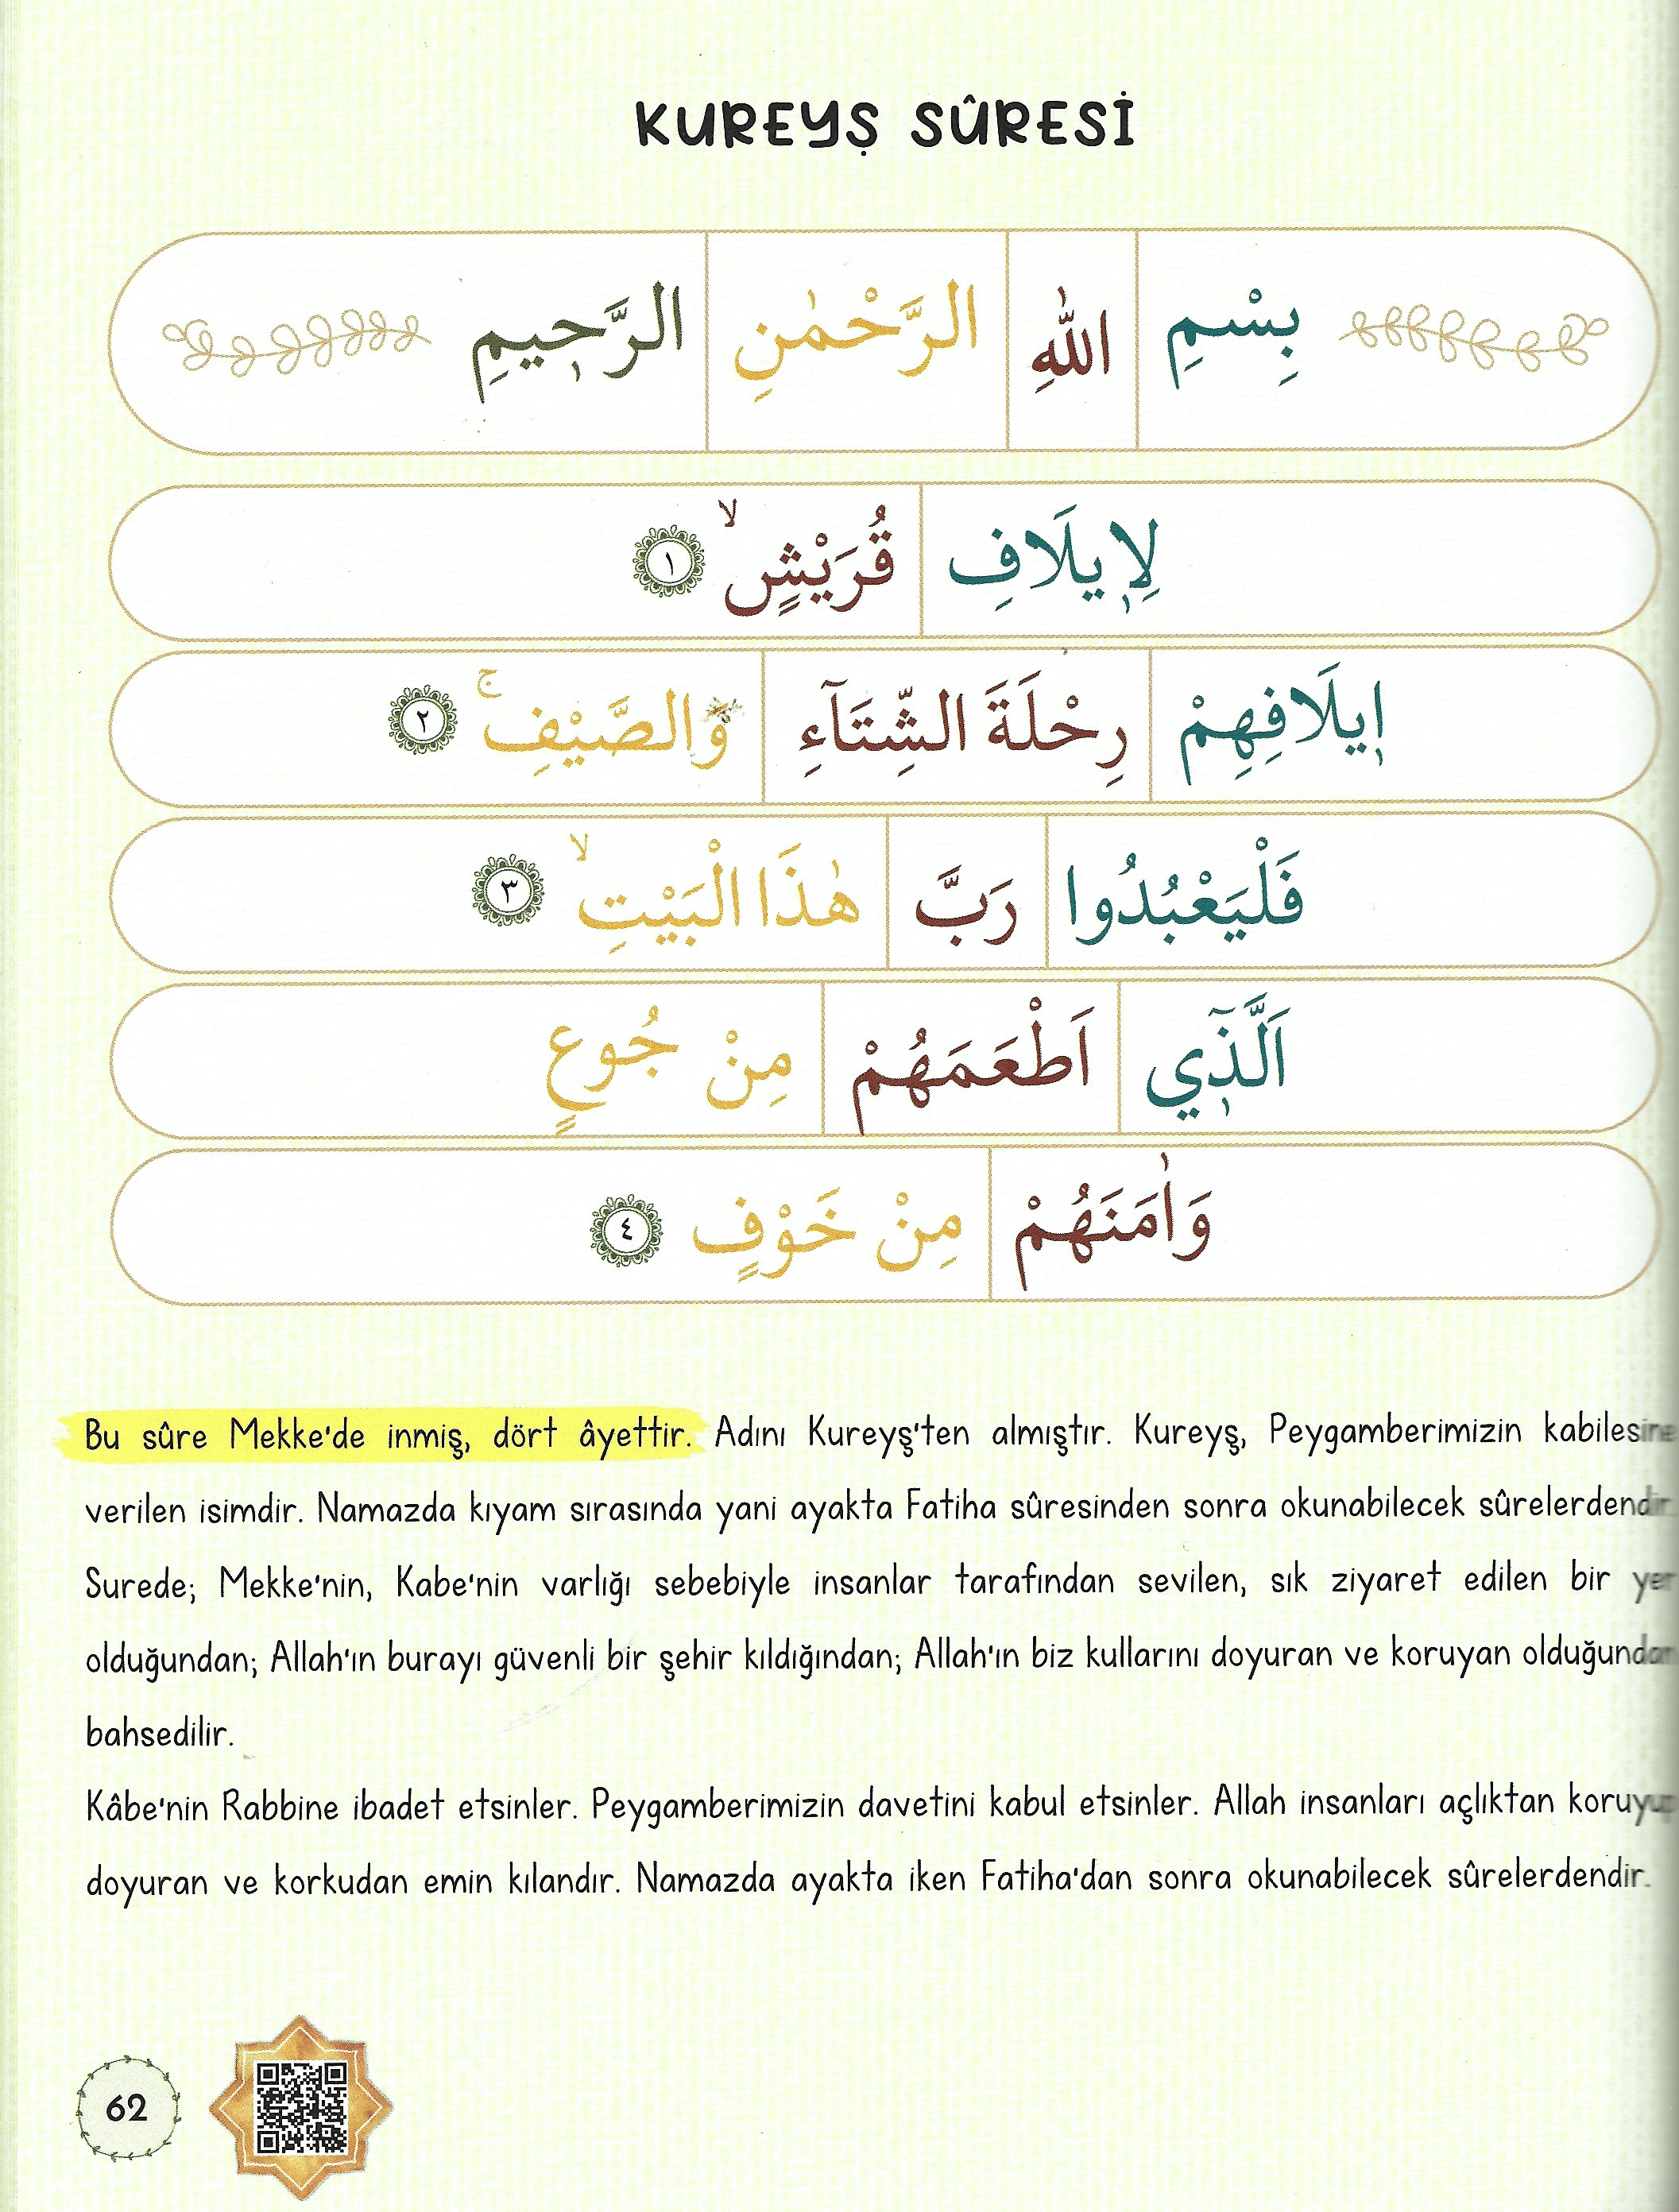 KUREYŞ SÛRESİ
بِسْمِ اللّٰهِ الرَّحْمٰنِ الرَّحٖيمِ
لِاٖيلَافِ قُرَيْشٍۙ ١
اٖيلَافِهِمْ رِحْلَةَ الشِّتَٓاءِ وَالصَّيْفِۚ ٢
فَلْيَعْبُدُوا رَبَّ هٰذَا الْبَيْتِۙ ٣
اَلَّذٖٓي اَطْعَمَهُمْ مِنْ جُوعٍ
وَاٰمَنَهُمْ مِنْ خَوْفٍ ٤
Bu sûre Mekke'de inmiş, dört âyettir. Adını Kureyş'ten almıştır. Kureyş, Peygamberimizin kabilesine
verilen isimdir. Namazda kıyam sırasında yani ayakta Fatiha sûresinden sonra okunabilecek sûrelerdendir.
Surede; Mekke'nin, Kabe'nin varlığı sebebiyle insanlar tarafından sevilen, sık ziyaret edilen bir yer
olduğundan; Allah'ın burayı güvenli bir şehir kıldığından; Allah'ın biz kullarını doyuran ve koruyan olduğundan
bahsedilir.
Kâbe'nin Rabbine ibadet etsinler. Peygamberimizin davetini kabul etsinler. Allah insanları açlıktan koruyup
doyuran ve korkudan emin kılandır. Namazda ayakta iken Fatiha'dan sonra okunabilecek sûrelerdendir.
62